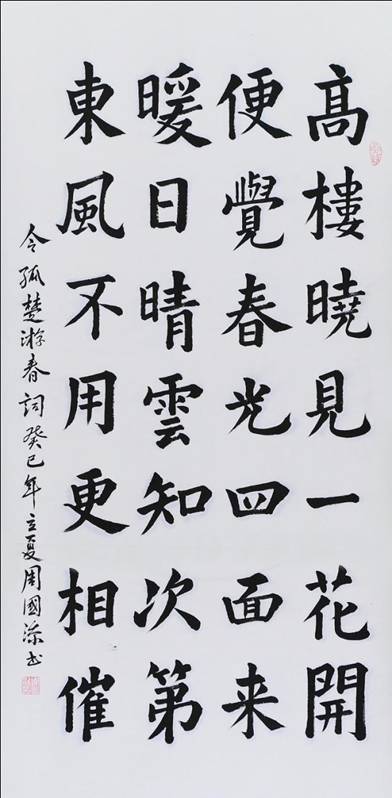 高樓曉見一花開
便覺春光四面来
暖日晴雲知次第
東風不用更相催
令狐楚游春詞癸巳年立夏周國添书